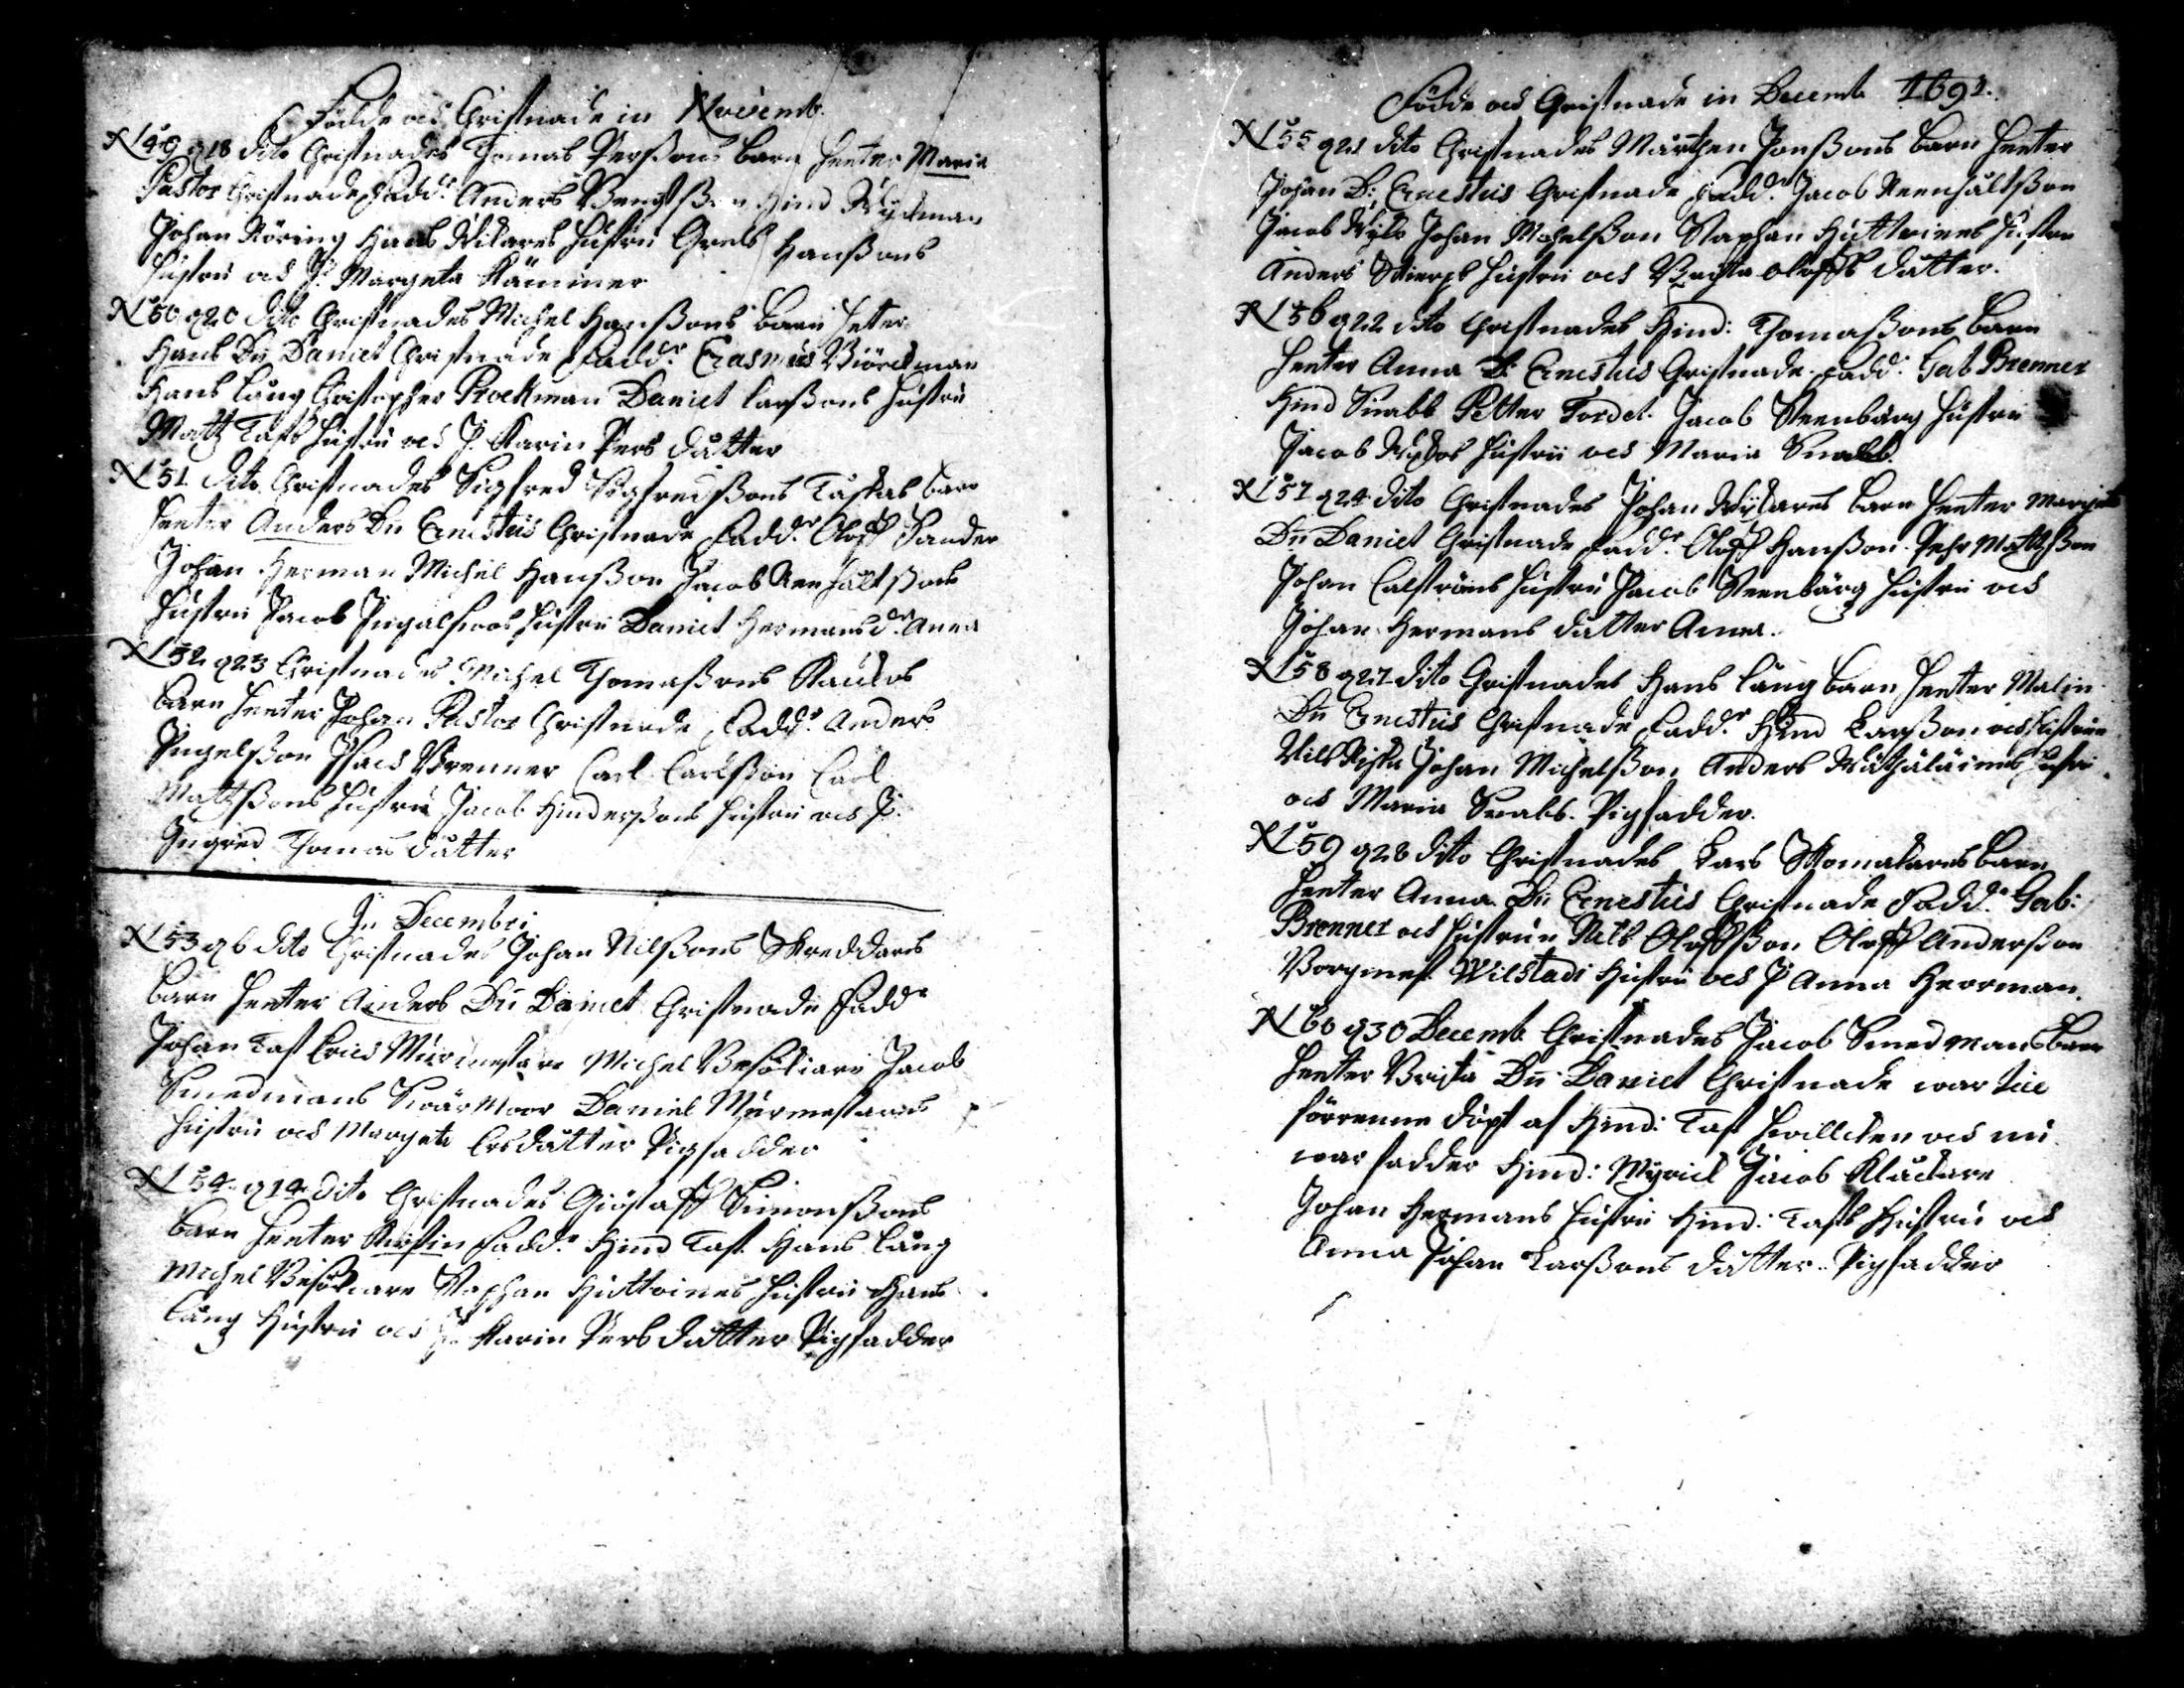 Födde och Christnade in Novemb.
N 49 d 18 dito Christnades Thomas Perßons barn heeter Maria
Pastor Christnade, Fadd. Anders Bengtßon Hind Wijkman
Johan Röring Hans Wikares hustru Grels Hanßons
hustru och P. Margeta Kämner
N 50 d 20 dito Christnades Michel Hanßons barn heter
Hans Dn Daniel Christnade Fadd. Erasmus Biörckman
Hans Lång Christopher Brockman Daniel Larßons hustru
Matz Tafts hustru och P. Karin Pers datter
N 51 dito Christnades Sigfred Sigfredßons barn
heeter Anders Dn Ernestus Christnade Fadd. Oloff Sander
Johan Herman Michel Hanßon Jacob
hustru Jacob hustru Daniel Hermans dr. Anna
N 52 d 23 Christnades Michel Thomaßons
barn heeter Johan Pastor Christnade Fadd. Anders
Ingelßon Isac Brenner Carl Carlßon Carl
Mattßons hustru Jacob Hinderßons hustru och P.
Ingred Thomas datter
In Decembri
N 53 d 6 dito Christnades Johan Nilßons Skreddares
barn heeter Anders Dn Daniel Christnade Fadd
Johan Tast Erich Mürmestare Michel Besökiare Jacob
Smedmans Swärmoor Daniel Mürmestares
hustru och Margeta Ersdatter Pigfadder
N 54 d 14 dito Christnades Giöstaff Simonßons
barn heeter Kirstin Fadd. Hind Tast Hans Lång
Michel Besökiare Staphan Huttoines hustru Hans
Lång Hustru och P. Karin Pers datter Pigfadder
Födde och Christnade in Decemb 1691.
N 55 d 21 dito Christnades Mårthen Jonßons barn heeter
Johan D: Ernestus Christnade Fadd. Jacob
Jacob Johan Michelßon Staphan Huttoines hustru
Anders hustru och Brijta Oloffs datter.
N 56 d 22 dito Christnades Hind: Thomaßons barn
heeter Anna D: Ernestus Christnade Fadd. Gab Brenner
Hind Snabb Petter Tordel. Jacob Steenbärg hustru
Jacob hustru och Maria Snabb.
N 57 d 24 dito Christnades Johan Wijkares barn heeter Margeta
Dn Daniel Christnade Fadd. Oloff Hanßon Pehr Mattßon
Johan Calströms hustru Jacob Steenbärg hustru och
Johan Hermans datter Anna.
N 58 d 27 dito Christnades Hans Lång barn heeter Malin
Dn Ernestus Christnade Fadd. Hind Larßon och hustrun
Nils Johan Michelßon Anders hustru
och Maria Snabs. Pigfadder.
N 59 d 28 dito Christnades Lars Skomakares barn
heeter Anna Dn Ernestus Christnade Fadd. Gab:
Brenner och hustrun Nils Oloffßon Oloff Anderßon
Borgmest. Wilstadi hustru och P Anna Herrman.
N 60 d 30 Decemb Christnades Jacob Smedmans barn
heeter Brijta Dn Daniel Christnade war
förrenne döpt af Hind: Tast hwilcken och nu
war fadder Hind: Jacob Klåckare
Johan Hermans hustru Hind: Tasts Hustru och
Anna Johan Larßons datter Pigfadder